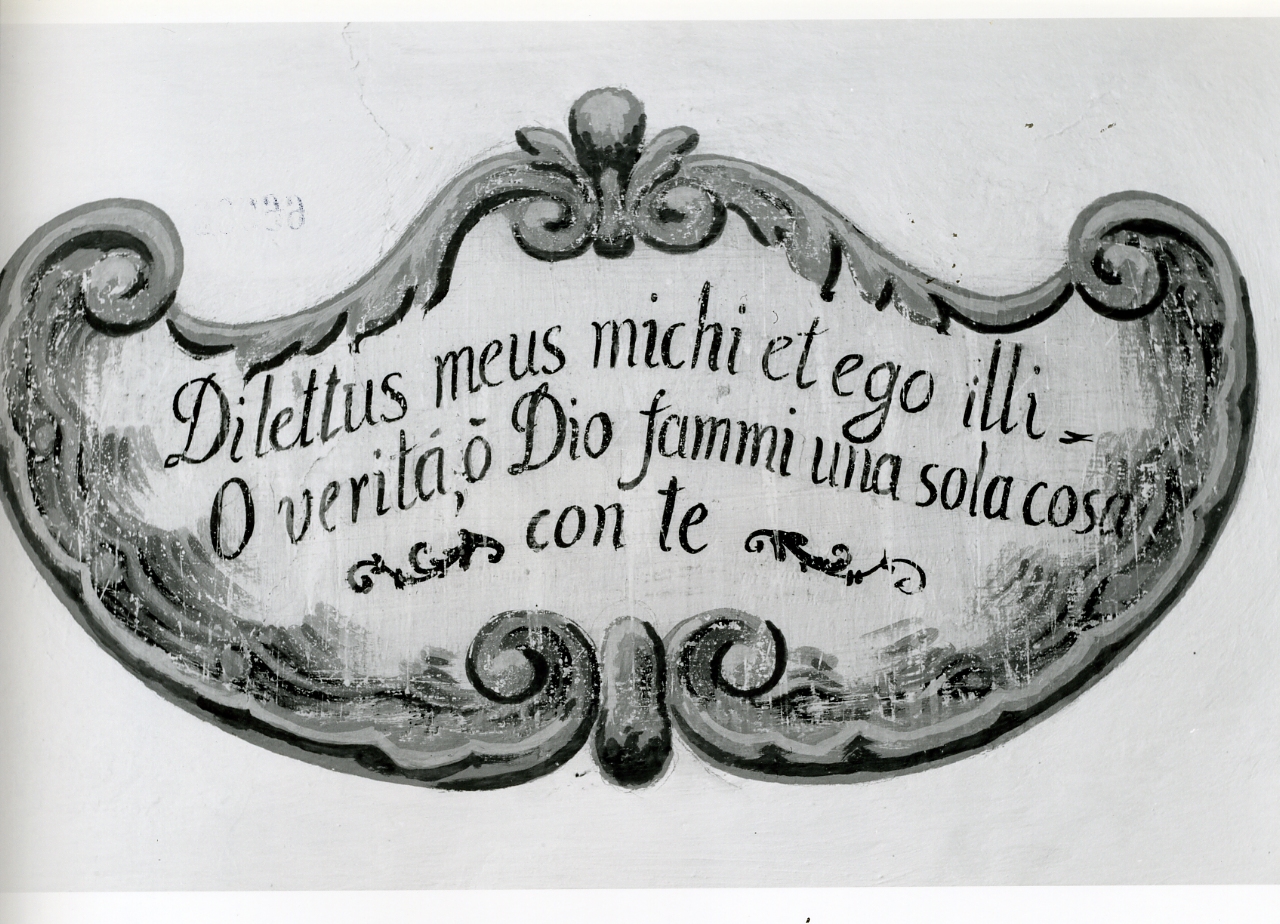 Dilettus meus michi et ego illi -
O veritá, ō Dio fammi una sola cosa
con te